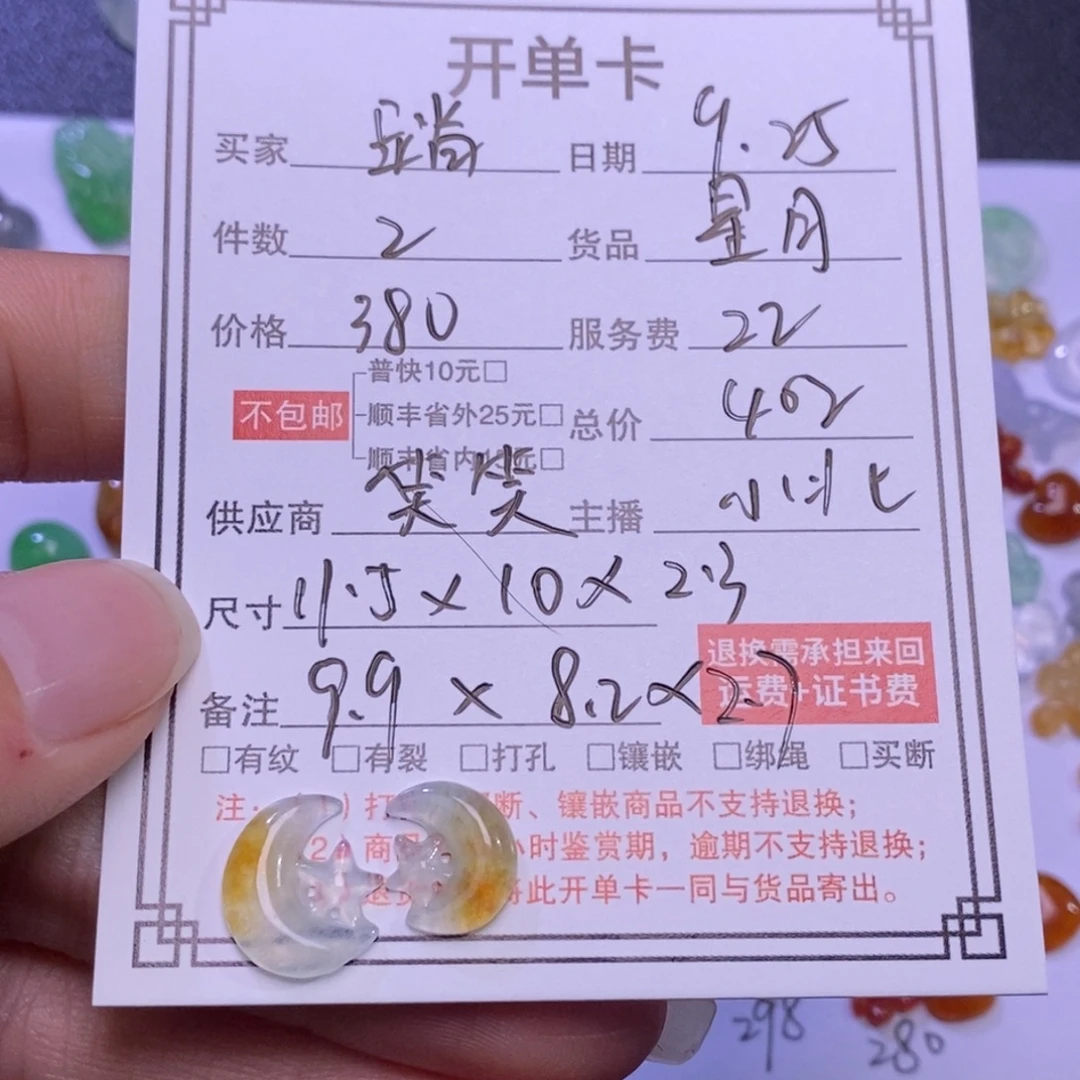 开单卡
买家 日期 9.25
件数 2 货品 星月
价格 380 服务费 22
普快10元□
不包邮 顺丰省外25元□ 总价 402
顺丰省内15元□
供应商 笑笑 主播
尺寸 11.5×10×2.3
退换需承担来回
备注 9.9×8.2×2.7 运费+证书费
□有纹 □有裂 □打孔 □镶嵌 □绑绳 □买断
注: 打 断、镶嵌商品不支持退换;
2 商 小时鉴赏期,逾期不支持退换;
退 将此开单卡一同与货品寄出。
298 280